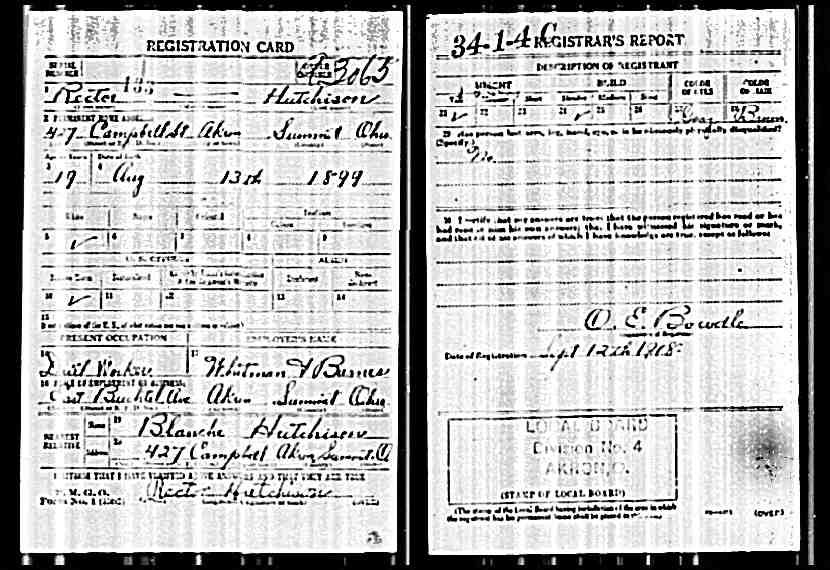 REGISTRATION CARD
SERIAL NUMBER 155
ORDER NUMBER A3065
1 Rector Hutchison
2 PERMANENT HOME ADDRESS
427 Campbell St Akron Summit Ohio
Age in Years Date of Birth
3 19 4 Aug 13th 1899
5 6 7 8 9
U. S. CITIZEN ALIEN
10 11 12 13 14
15
PRESENT OCCUPATION EMPLOYER'S NAME
16 17 Whitman & Barnes
18 PLACE OF EMPLOYMENT OR BUSINESS
East Buchtel Ave Akron Summit Ohio
NEAREST RELATIVE
Name 19 Blanche Hutchison
Address 20 427 Campbell Akron Summit O
I AFFIRM THAT I HAVE VERIFIED ABOVE ANSWERS AND THAT THEY ARE TRUE
P. M. G. O.
Form No. 1 (Red) Rector Hutchison (OVER)
34-1-4 C REGISTRAR'S REPORT
DESCRIPTION OF REGISTRANT
HEIGHT BUILD COLOR OF EYES COLOR OF HAIR
Short Slender Medium Stout
21 22 23 24 25 26 27 Gray 28 Brown
29 Has person lost arm, leg, hand, eye, or is he obviously physically disqualified?
(Specify.) No
30 I certify that my answers are true; that the person registered has read or has
had read to him his own answers; that I have witnessed his signature or mark,
and that all of his answers of which I have knowledge are true, except as follows:
O. E. Bowdle
Date of Registration Sept 12th 1918
LOCAL BOARD
Division No. 4
AKRON, O.
(STAMP OF LOCAL BOARD)
(The stamp of the Local Board having jurisdiction of the area in which
the registrant has his permanent home shall be placed in this box.)
(OVER)